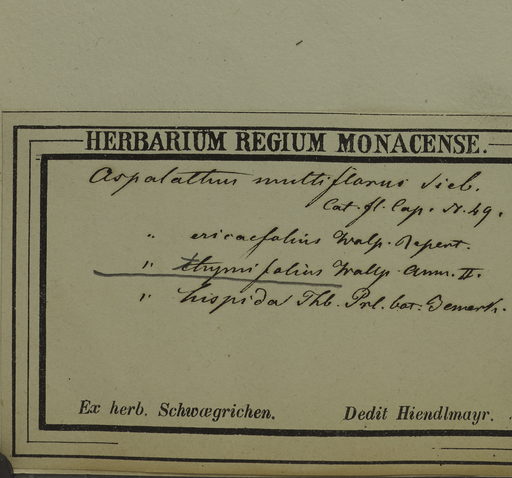 HERBARIUM REGIUM MONACENSE.
Aspalathus multiflorus Sieb.
Cat. fl. Cap. N. 49.
" ericaefolius Walp. Repert.
" thymifolius Walp. Ann. II.
" hispida Thb. Prl. bot. Bemerk.
Ex herb. Schwægrichen. Dedit Hiendlmayr.